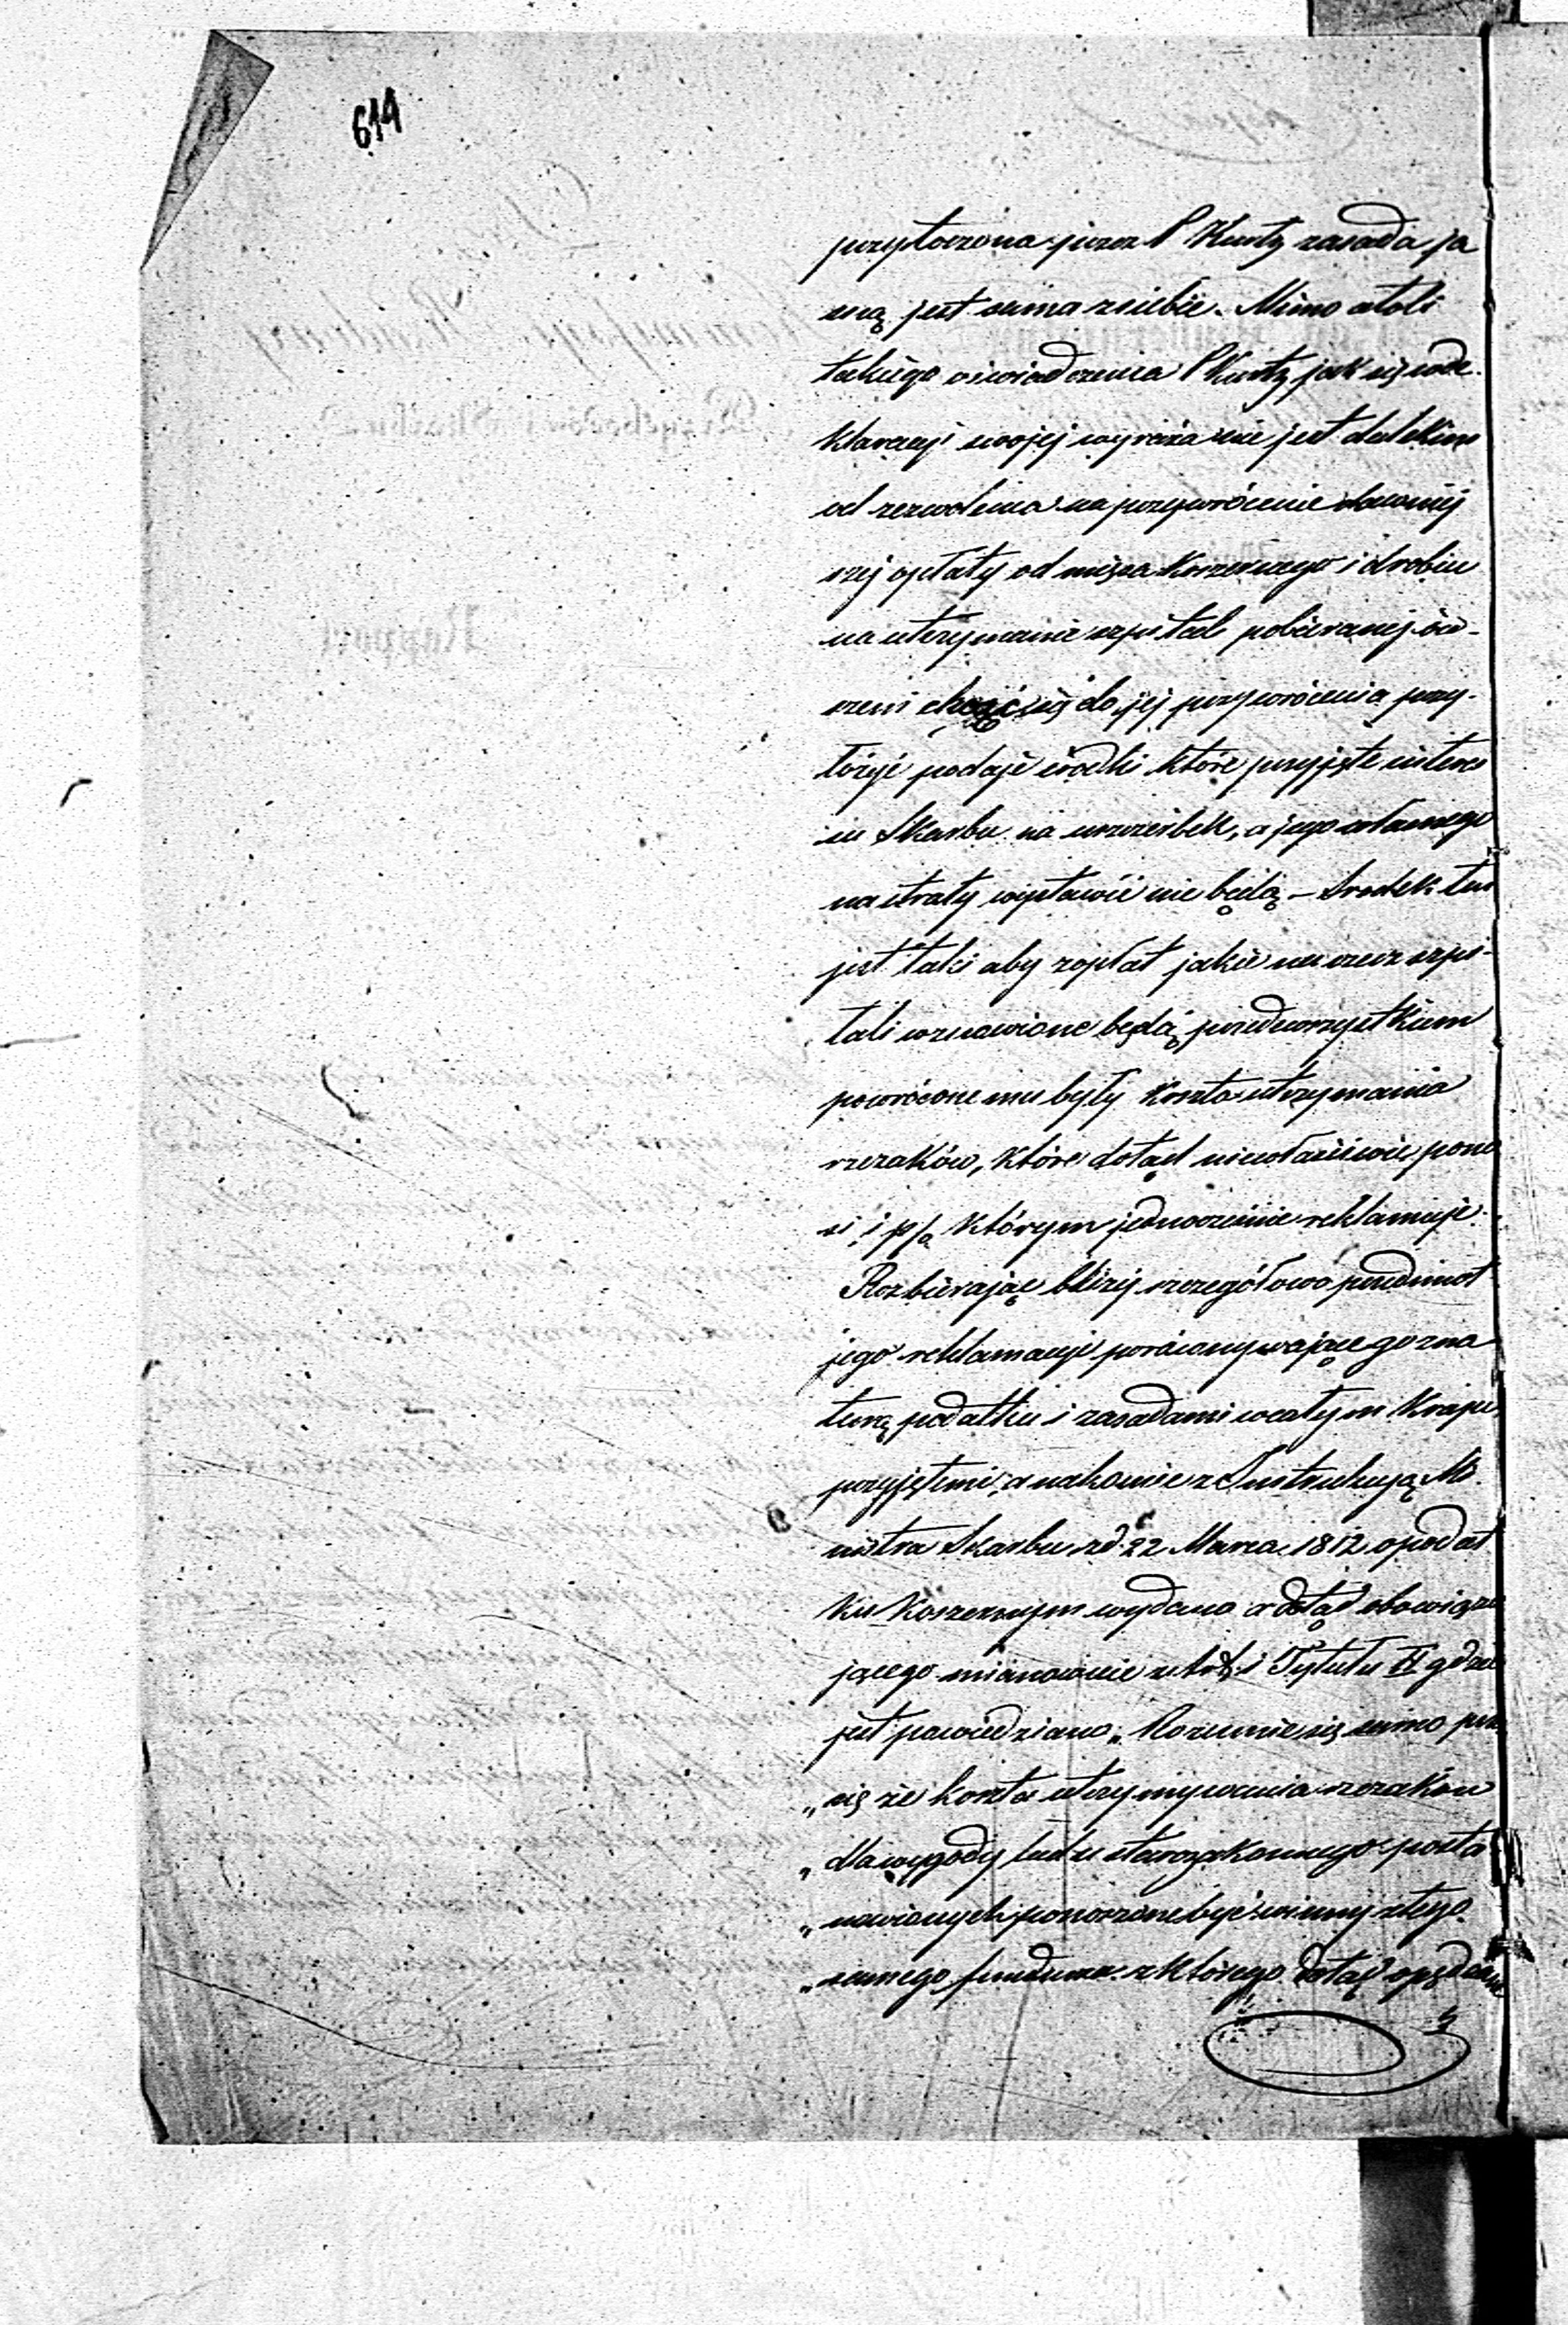 614
przytoczona przez P Kurtz zasada ja
sną jest sama z siebie. Mimo atoli
takiego oświadczenia P Kurtz jak się w de
klaracyi swojej wyraża nie jest dalekim
od zezwolenia na przywrócenie dawniej
szej opłaty od mięsa koszernego i drobiu
na utrzymanie szpitali pobieranej ów-
szem chcąc się do jej przywrócenia przy-
łożyć podaje środki które przyjęte interes
su Skarbu na uszczerbek, a jego własnego
na straty wystawić nie będą – Srodek ten
jest taki aby z opłat jakie na rzecz szpi-
tali wznowione będą, przedewszystkiem
powrócone mu były koszta utrzymania
rzezaków, które dotąd niewłaściwie pono
si, i o które jednocześnie reklamuje.
Rozbierając bliżej szczegółowo przedmiot
jego reklamacyi porównywając go z na
turą podatku i zasadami w całym Kraju
przyjętemi, a nakoniec z Instrukcyą Mi
nistra Skarbu z d. 22 Marca 1812 o podat
ku Koszernym wydana a dotąd obowięzu
jącego mianowicie Tytułu II gdzie
jest powiedziano „Rozumie się samo przez
„się że koszta utrzymywania rzezaków
„dla wygody ludu starozakonnego posta
„nowionych ponoszone być winny z tego
„samego funduszu z którego dotąd opędzane